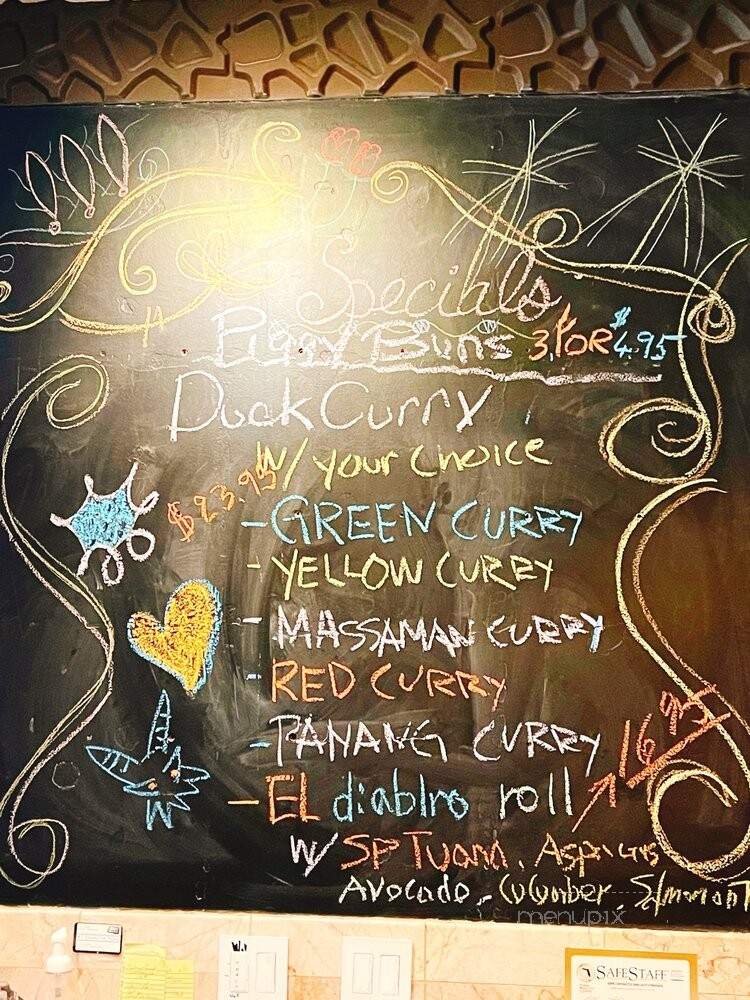 Specials
Piggy Buns 3 FOR $4.95
Duck Curry
W/ your choice
$23.95
- GREEN CURRY
- YELLOW CURRY
- MASSAMAN CURRY
- RED CURRY
- PANANG CURRY
- EL diablro roll 16.95
W/ SP Tuana, Aspargus
Avocado, Cucumber, Salmon on T
menupix
SAFESTAFF